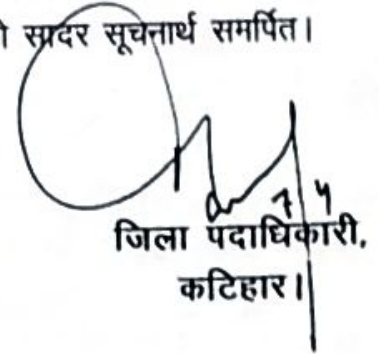 सादर सूचनार्थ समर्पित।
जिला पदाधिकारी,
कटिहार।